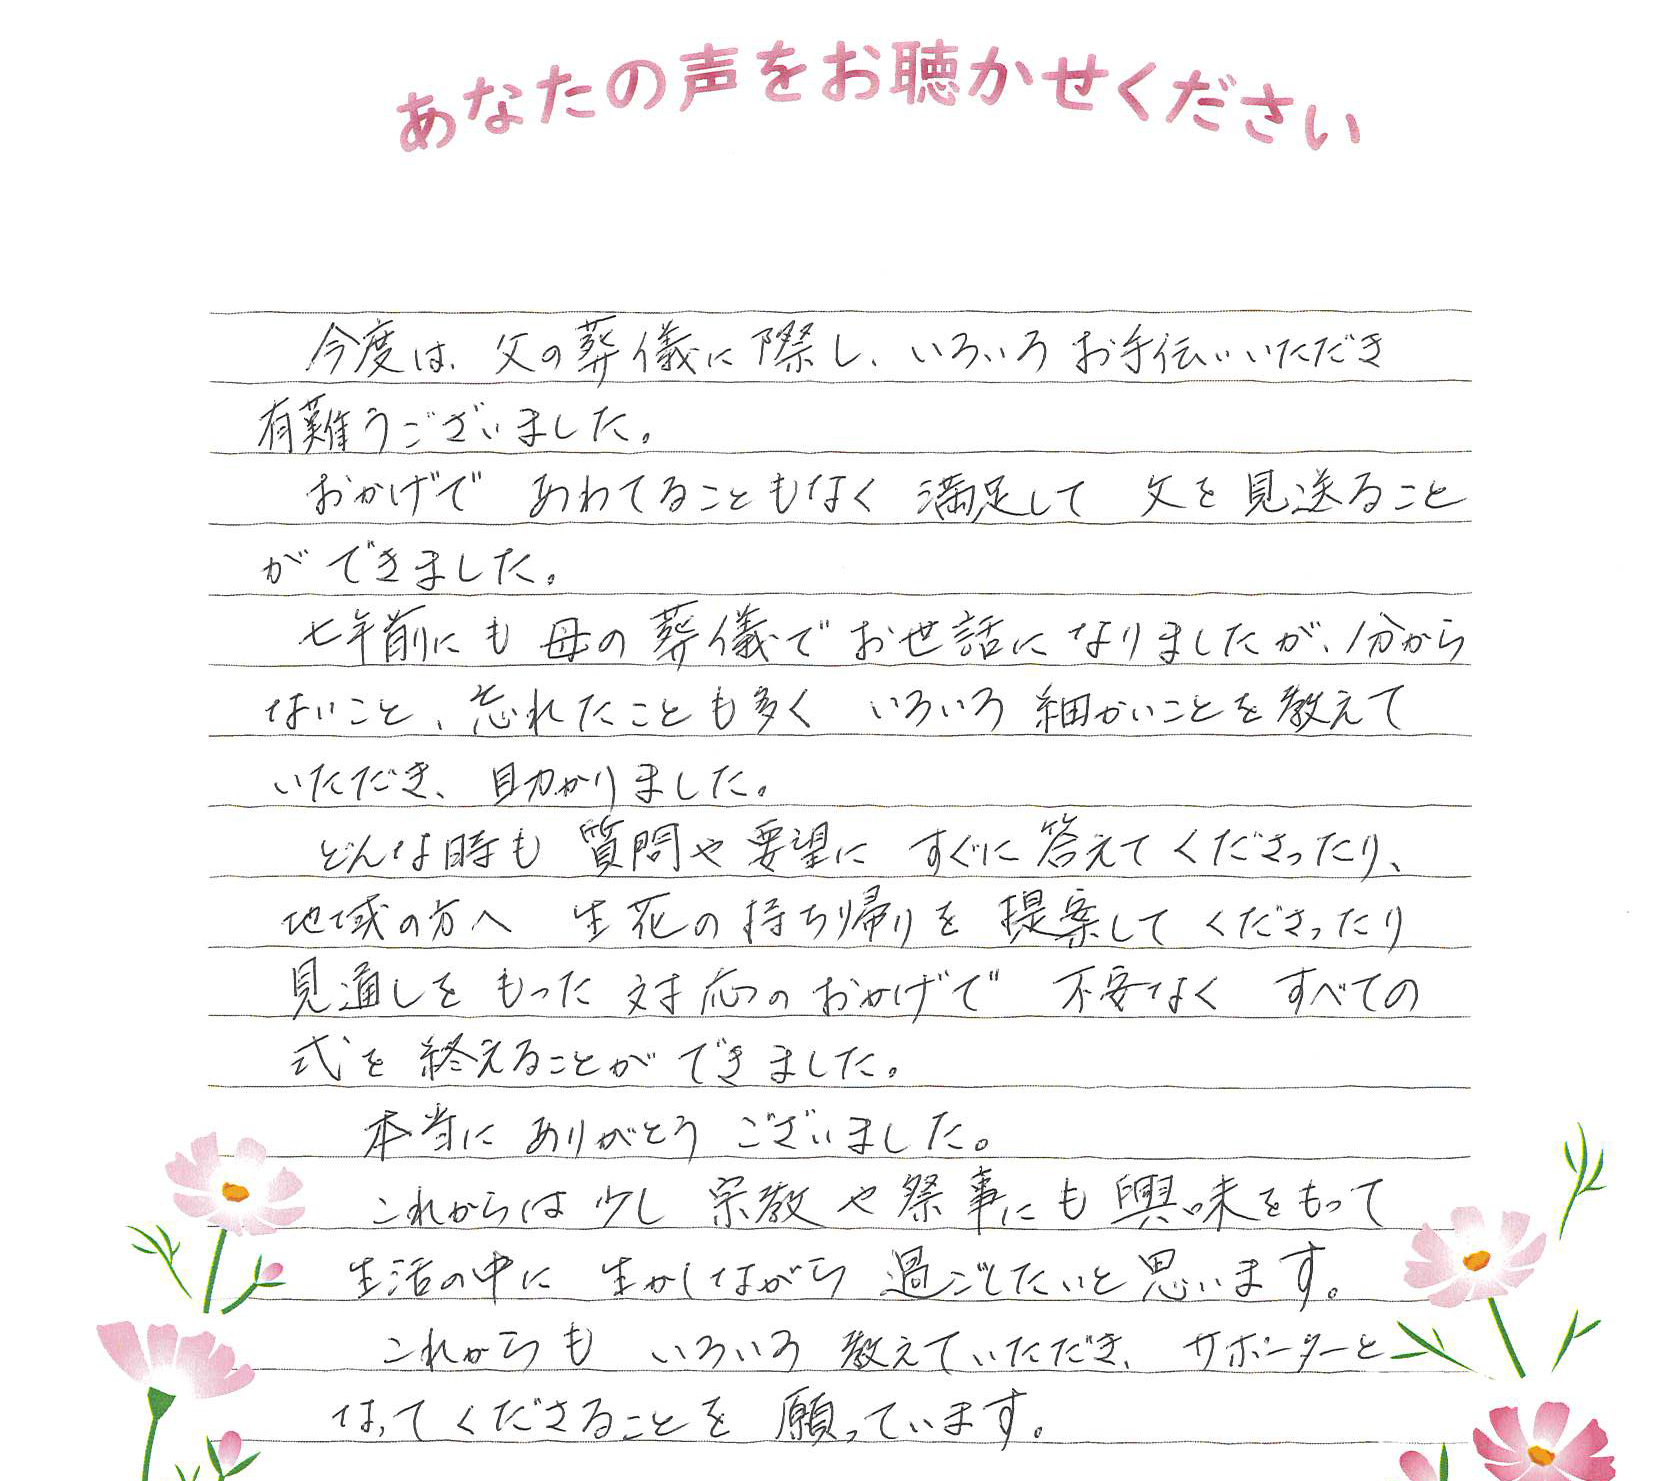 あなたの声をお聴かせください
今度は、父の葬儀に際し、いろいろ お手伝いいただき
有難うございました。
おかげで あわてることもなく 満足して 父を 見送ること
ができました。
七年前にも 母の 葬儀で お世話になりましたが、分から
ないこと、忘れたことも多く いろいろ 細かいことを教えて
いただき、助かりました。
どんな時も 質問や要望に すぐに答えてくださったり、
地域の方へ 生花の持ち帰りを 提案してくださったり
見通しを もった 対応のおかげで 不安なく すべての
式を 終えることができました。
本当に ありがとう ございました。
これからは 少し 宗教や祭事にも興味をもって
生活の中に 生かしながら 過ごしたいと思います。
これからも いろいろ 教えていただき、サポーターと
なってくださることを 願っています。